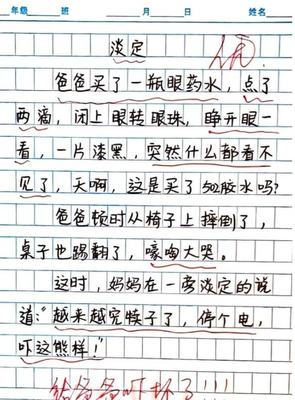 年级 班 月 日 姓名
淡定
爸爸买了一瓶眼药水，点了
两滴，闭上眼转眼珠，睁开眼一
看，一片漆黑，突然什么都看不
见了，天啊，这是买了502胶水吗?
爸爸顿时从椅子上摔倒了，
桌子也踢翻了，嚎啕大哭。
这时，妈妈在一旁淡定的说
道:“越来越完犊子了，停个电，
吓这熊样!”
给爸爸吓坏了!!!